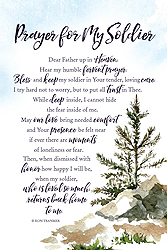 Prayer for My Soldier
Dear Father up in Heaven,
Hear my humble fervent prayer.
Bless and keep my soldier in Your tender, loving care
I try hard not to worry, but to put all trust in Thee.
While deep inside, I cannot hide
the fear inside of me.
May our love bring needed comfort
and Your presence be felt near
if ever there are moments
of loneliness or fear.
Then, when dismissed with
honor how happy I will be,
when my soldier,
who is loved so much
returns back home
to me.
© RON TRANMER